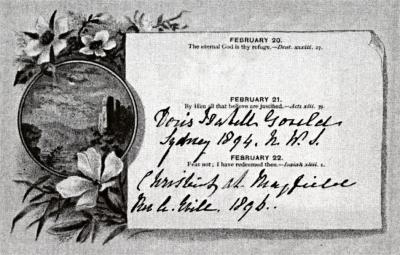 FEBRUARY 20.
The eternal God is thy refuge.—Deut. xxxiii. 27.
FEBRUARY 21.
By Him all that believe are justified.—Acts xiii. 39.
Doris Isabell Goulds
Sydney 1894. N. W. S.
FEBRUARY 22.
Fear not; I have redeemed thee.—Isaiah xliii. 1.
at Mayfield
1896.